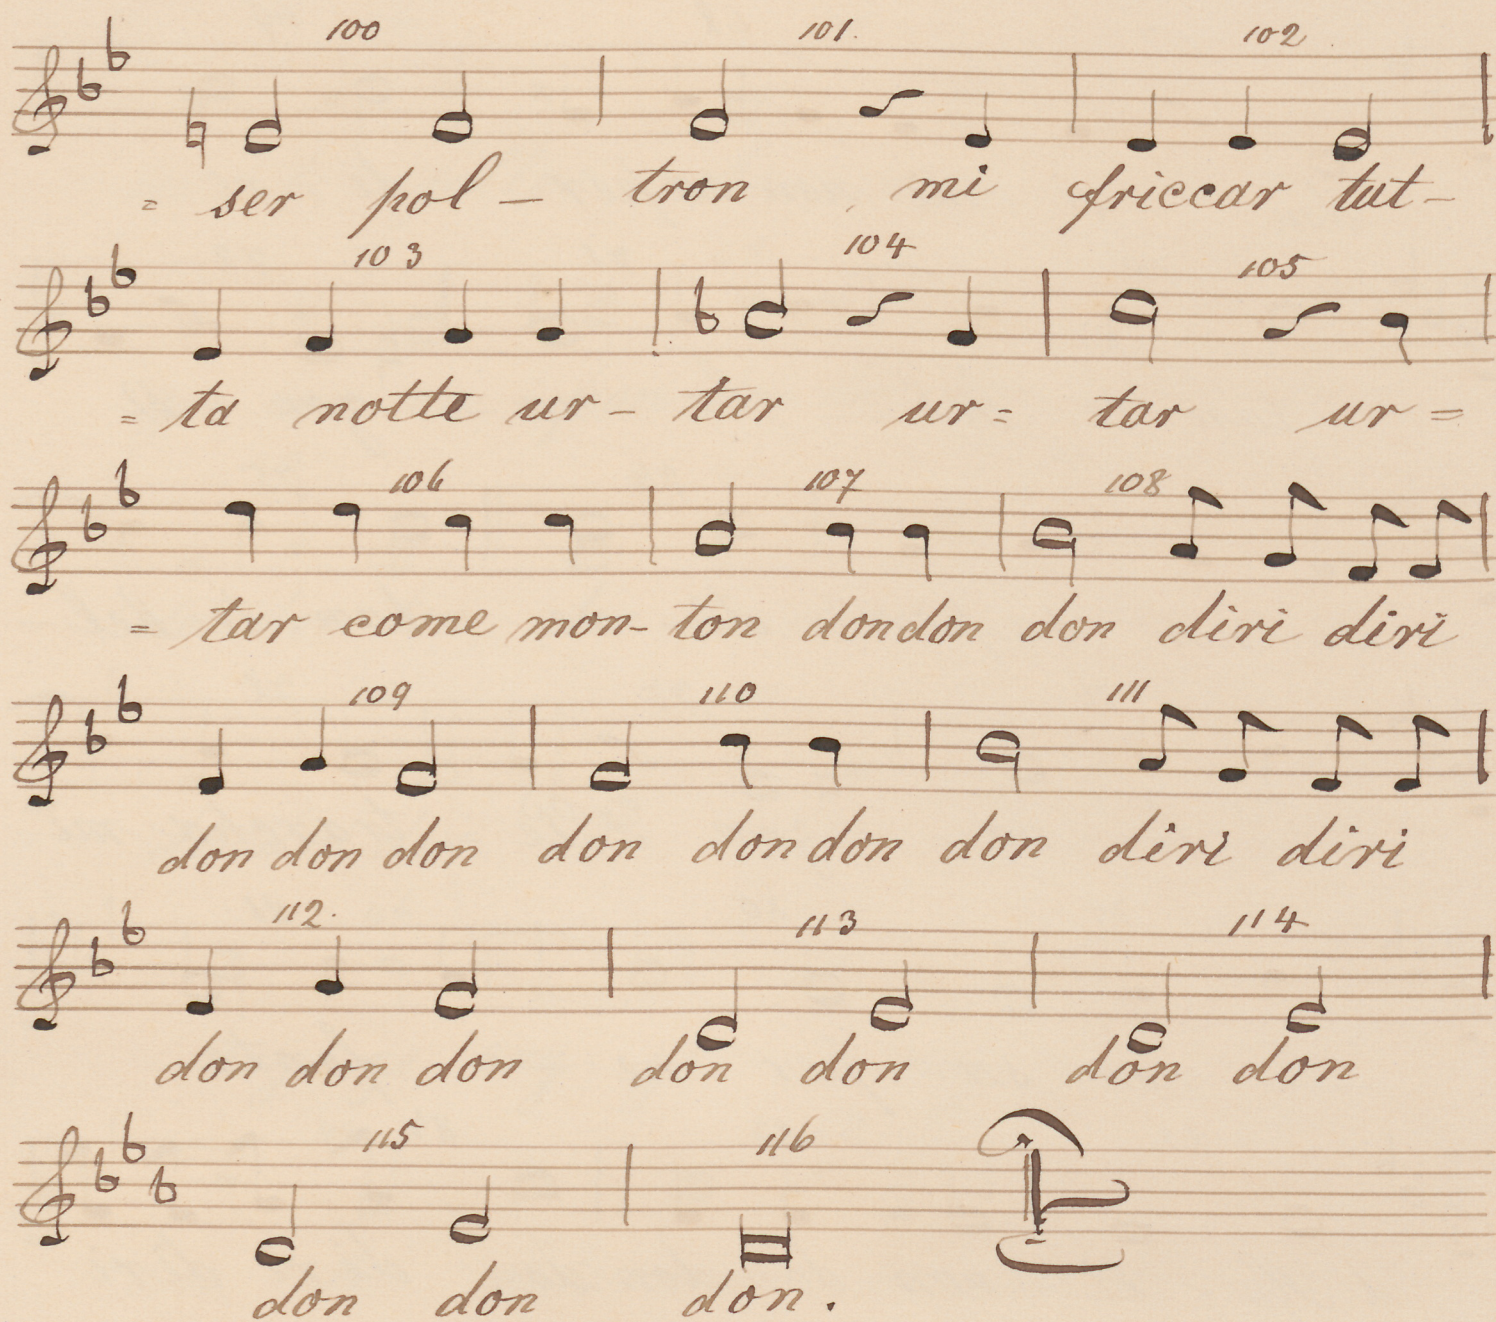 100 101. 102
= ser pol – tron mi friccar tut –
103 104 105
= ta notte ur – tar ur = tar ur =
106 107 108
= tar come mon- ton dondon don diri diri
109 110 111
don don don don don don don diri diri
112. 113 114
don don don don don don don
115 116
don don don.